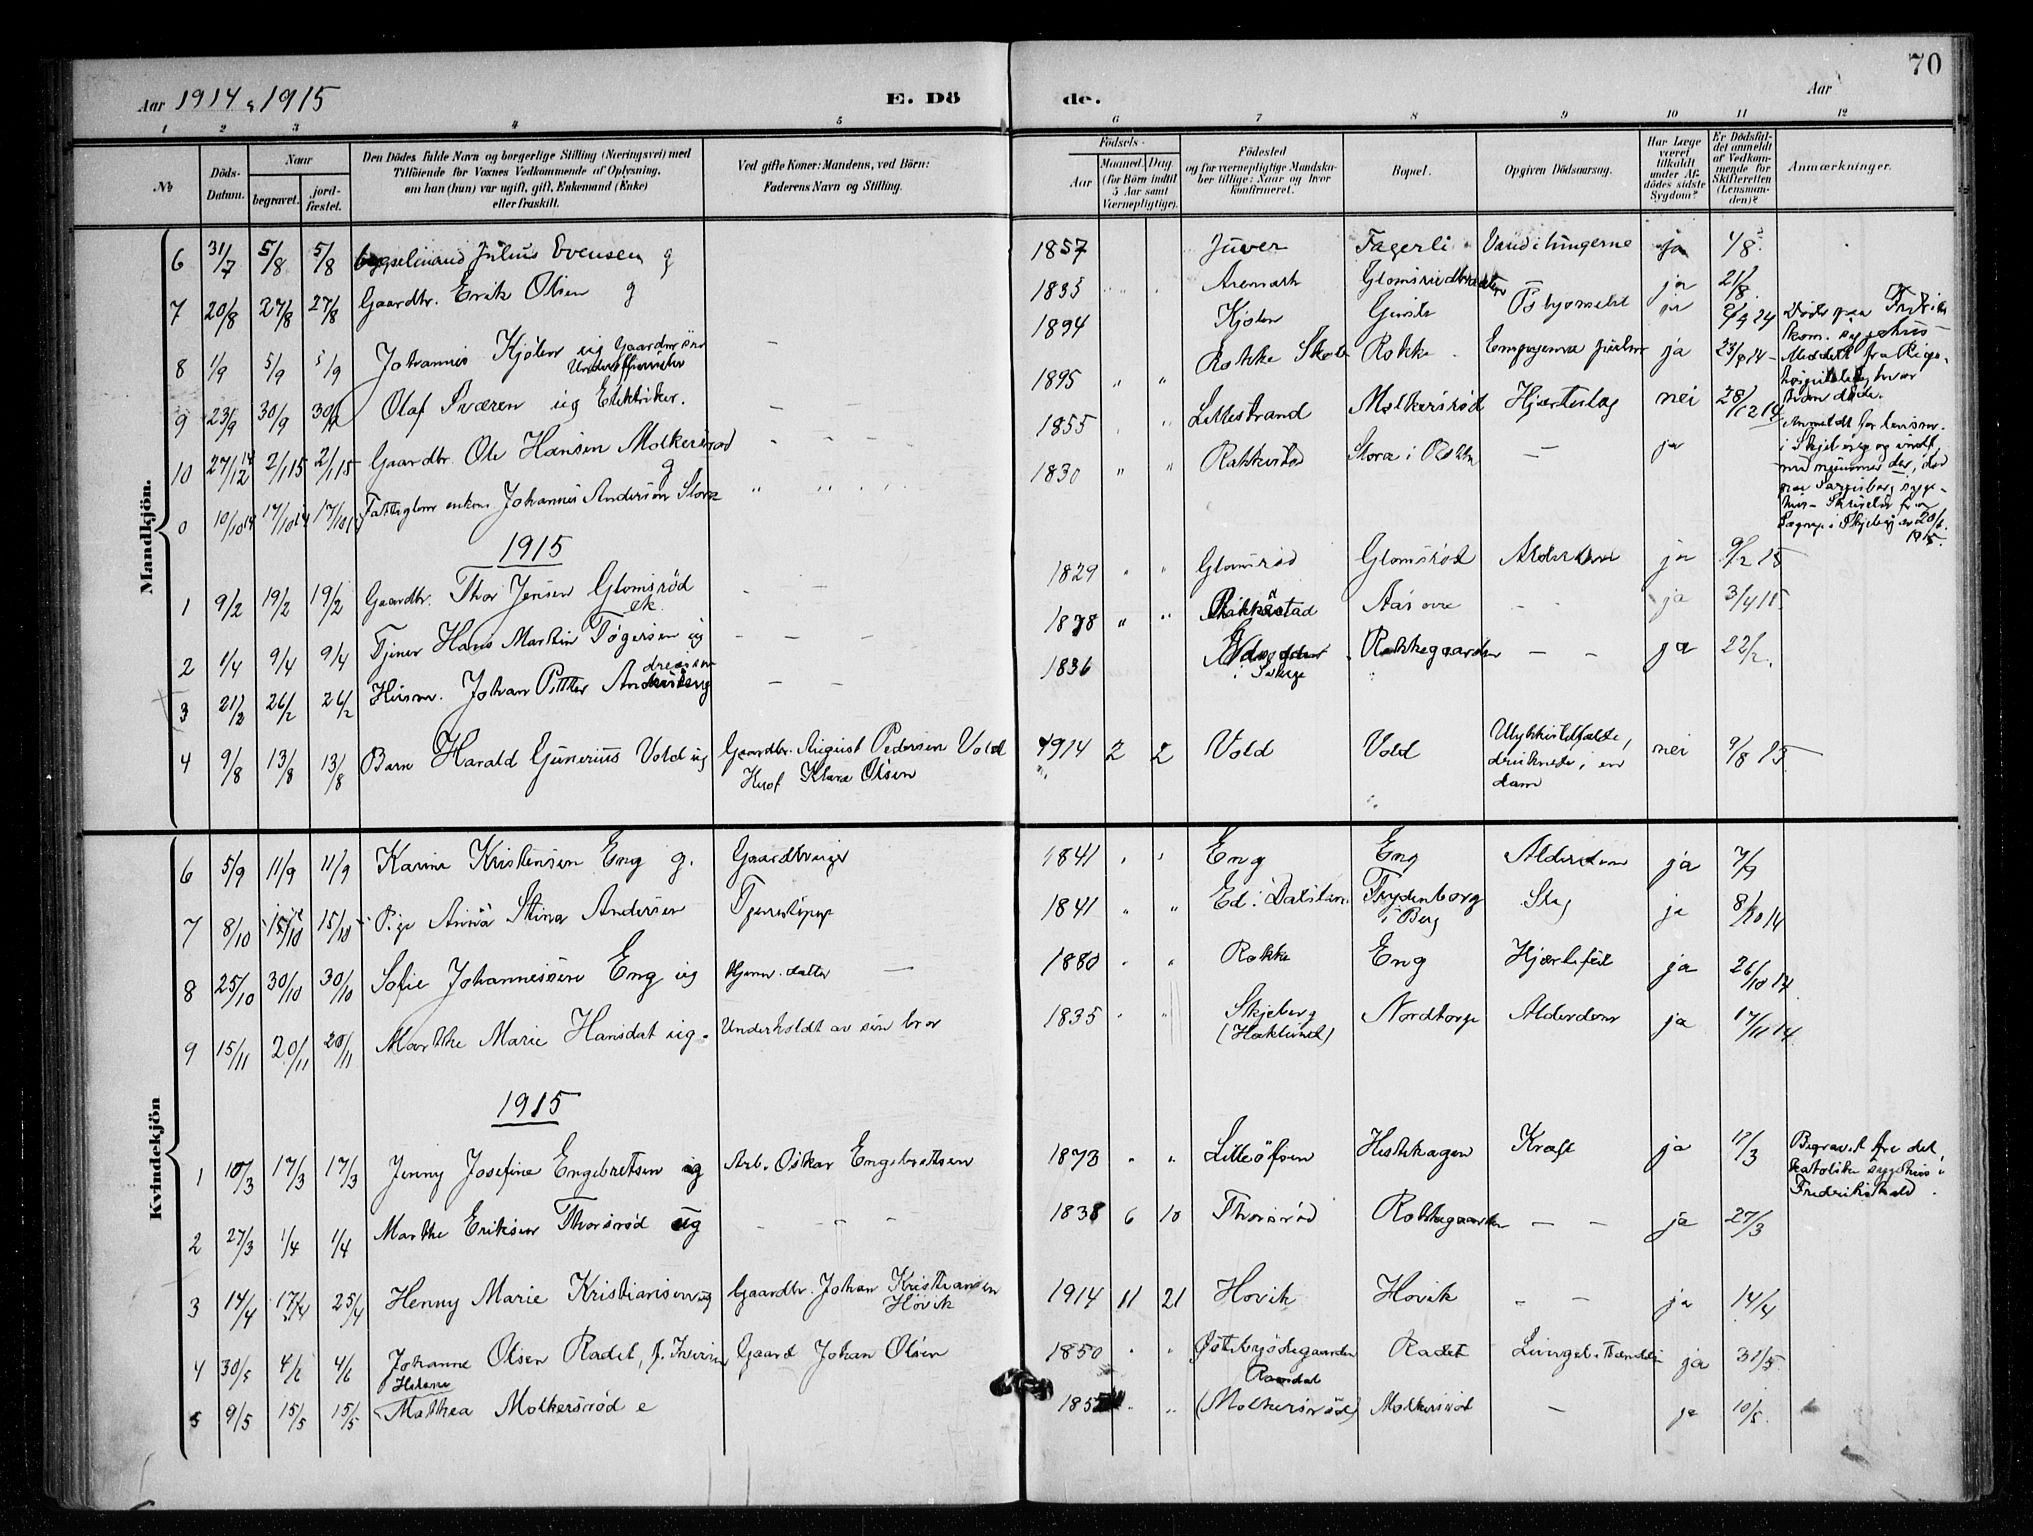 70
Aar 1914 & 1915
E. Dö
de.
Aar
1 2 3 4 5 6 7 8 9 10 11 12
No
Döds-Datum.
Naar
begravet.
jord-fæstet.
Den Dödes fulde Navn og borgerlige Stilling (Næringsvei) med
Tilföiende for Voxnes Vedkommende af Oplysning,
om han (hun) var ugift, gift, Enkemand (Enke)
eller fraskilt.
Ved gifte Koner: Mandens, ved Börn:
Faderens Navn og Stilling.
Födsels-
Aar
Maaned. Dag.
(for Börn indtil
5 Aar samt
Værnepligtige).
Födested
og for værnepligtige Mandska-
ber tillige: Naar og hvor
konfirmeret.
Bopæl.
Opgiven Dödsaarsag.
Har Læge
været
tilkaldt
under Af-
dödes sidste
Sygdom?
Er Dödsfal-
det anmeldt
af Vedkom-
mende for
Skifteretten
(Lensman-
den)?
Anmærkninger.
Mandkjön.
6 31/7 5/8 5/8 Julius Evensen g 1857 Juver Fagerli Vand i lungerne ja 1/8
7 20/8 27/8 27/8 Gaardbr. Erik Olsen g 1835 Aremark ja 21/8
8 1/9 5/9 5/9 Johannes Kjölen ug Gaardmrsön Underofficerselev 1894 Kjölen ja
Döde paa Fredriks
sygehus
9 23/9 30/9 30/9 Olaf Sværen ug Elektriker. 1895 Rokke Skole Rokke ja
Meddelt fra Rigs-
hospitalet hvor
han döde.
10 27/12 14 2/1 15 2/1 15 Gaardbr. Ole Hansen Molkersrød g 1855 Lillestrand Molkersrød Hjærteslag nei 28/12 14
0 10/10 14 17/10 14 17/10 Johannes Andersen Stora 1830 Rakkestad Stora i Rokke — ja
Anmeldt for lensm.
i Skjeberg og
Sarpsborg syge-
hus
i Skjeberg av 20/1
1915.
1915
1 9/2 19/2 19/2 Gaardbr. Thor Jensen Glomsrød ek. 1829 Glomsrød Glomsrød Alderdom ja 9/2 15
2 1/4 9/4 9/4 Tjener Hans Martin Tøgersen ug 1878 Rakkestad Aas øvre ja 3/4 15
3 21/2 26/2 26/2 Husm. Johan Petter Andreassen 1836 Rokkegaarden ja 22/2
4 9/8 13/8 13/8 Barn Harald Gunerius Vold ug Gaardbr. August Pedersen Vold
Hust. Klara Olsen 1914 2 2 Vold Vold Ulykkestilfælde,
druknede i en
dam nei 9/8 15
Kvindekjön
6 5/9 11/9 11/9 Karine Kristensen Eng g. Gaardbruger 1841 Eng Eng Alderdom ja 7/9
7 8/10 15/10 15/10 Pige Anna Stina Andersen Tjenestepige 1841 Ed i Dalsland Frydenborg
i Berg Slag ja 8/10 14
8 25/10 30/10 30/10 Sofie Johannessen Eng ug datter — 1880 Rokke Eng Hjærtefeil ja 26/10 14
9 15/11 20/11 20/11 Marthe Marie Hansdat ug. Underholdt av sin bror 1835 Skjeberg
(Haklund) Nordtorp Alderdom ja 17/11 14
1915
1 10/3 17/3 17/3 Jenny Josefine Engebretsen ug Arb. Oskar Engebretsen 1873 Heshhagen Kræft ja 11/3
Begravet fra det
katolske sygehus i
Fredrikshald.
2 27/3 1/4 1/4 Marthe Eriksen Thorsrød ug — — — 1838 6 10 Thorsrød Rokkegaarden — — ja 27/3
3 14/4 17/4 25/4 Henny Marie Kristiansen ug Gaardbr. Johan Kristiansen
Hovik 1914 11 21 Hovik Hovik ja 14/4
4 30/5 4/6 4/6 Johanne Olsen Radet, f. Iversen Gaard Johan Olsen 1850 Østebyødegaarden Radet ja 31/5
Helene
5 9/5 15/5 15/5 Mathea Molkersrød e 185 (Molkersrød) Molkersrød — ja 10/5